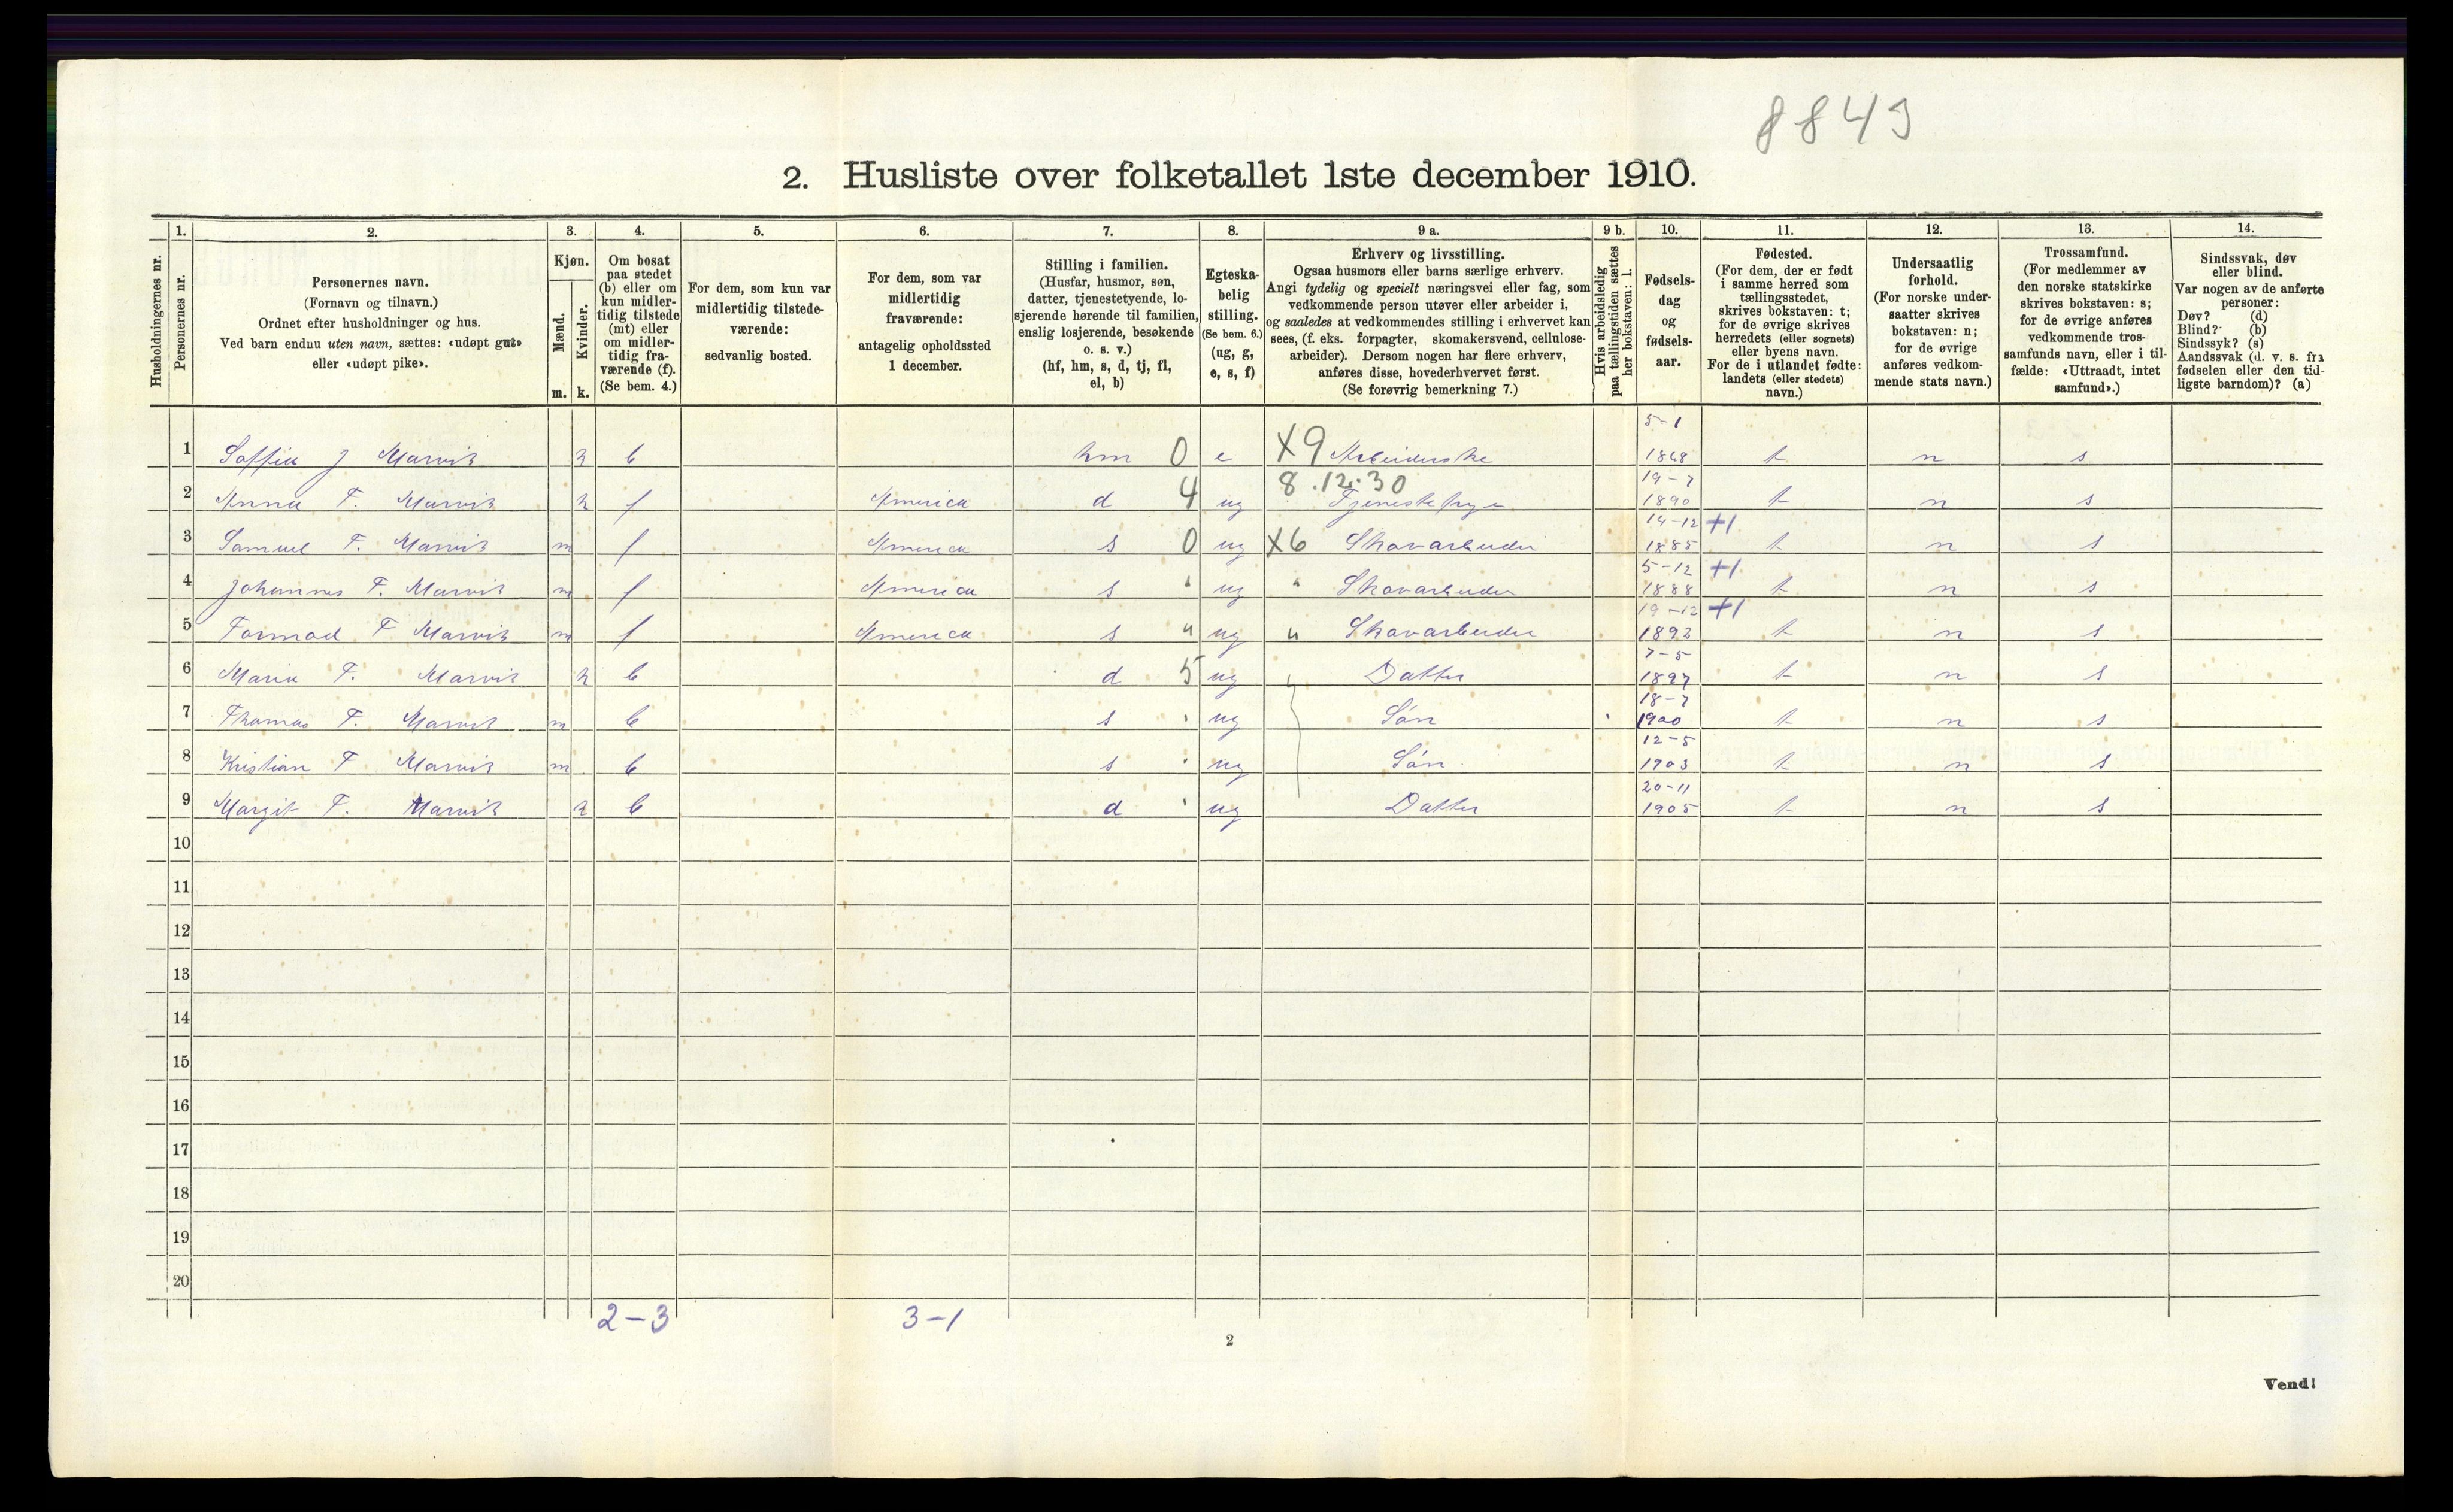 8849
2. Husliste over folketallet 1ste december 1910.
Husholdningernes nr.
1.
Personernes nr.
2.
Personernes navn.
(Fornavn og tilnavn.)
Ordnet efter husholdninger og hus.
Ved barn endnu uten navn, sættes: «udøpt gut»
eller «udøpt pike».
3.
Kjøn.
Mænd.
Kvinder.
m. k.
4.
Om bosat
paa stedet
(b) eller om
kun midler-
tidig tilstede
(mt) eller
om midler-
tidig fra-
værende (f).
(Se bem. 4.)
5.
For dem, som kun var
midlertidig tilstede-
værende:
sedvanlig bosted.
6.
For dem, som var
midlertidig
fraværende:
antagelig opholdssted
1 december.
7.
Stilling i familien.
(Husfar, husmor, søn,
datter, tjenestetyende, lo-
sjerende hørende til familien,
enslig losjerende, besøkende
o. s. v.)
(hf, hm, s, d, tj, fl,
el, b)
8.
Egteska-
belig
stilling.
(Se bem. 6.)
(ug, g,
e, s, f)
9 a.
Erhverv og livsstilling.
Ogsaa husmors eller barns særlige erhverv.
Angi tydelig og specielt næringsvei eller fag, som
vedkommende person utøver eller arbeider i,
og saaledes at vedkommendes stilling i erhvervet kan
sees, (f. eks. forpagter, skomakersvend, cellulose-
arbeider). Dersom nogen har flere erhverv,
anføres disse, hovederhvervet først.
(Se forøvrig bemerkning 7.)
9 b.
Hvis arbeidsledig
paa tællingstiden sættes
her bokstaven: l.
10.
Fødsels-
dag
og
fødsels-
aar.
11.
Fødested.
(For dem, der er født
i samme herred som
tællingsstedet,
skrives bokstaven: t;
for de øvrige skrives
herredets (eller sognets)
eller byens navn.
For de i utlandet fødte:
landets (eller stedets)
navn.)
12.
Undersaatlig
forhold.
(For norske under-
saatter skrives
bokstaven: n;
for de øvrige
anføres vedkom-
mende stats navn.)
13.
Trossamfund.
(For medlemmer av
den norske statskirke
skrives bokstaven: s;
for de øvrige anføres
vedkommende tros-
samfunds navn, eller i til-
fælde: «Uttraadt, intet
samfund».)
14.
Sindssvak, døv
eller blind.
Var nogen av de anførte
personer:
Døv? (d)
Blind? (b)
Sindssyk? (s)
Aandssvak (d. v. s. fra
fødselen eller den tid-
ligste barndom)? (a)
5-1
1 Soffia J Marvik k b hm 0 e X9 Arbeiderske 1868 t n s
8.12.30 19-7
2 Anna T. Marvik k f America d 4 ug Tjenestepige 1890 t n s
14-12 +1
3 Samuel T. Marvik m f America s 0 ug X6 Skovarbeider 1885 t n s
5-12 +1
4 Johannes T. Marvik m f America s " ug " Skovarbeider 1888 t n s
19-12 +1
5 Tormod T Marvik m f America s " ug " Skovarbeider 1892 t n s
7-5
6 Maria T. Marvik k b d 5 ug Datter 1897 t n s
18-7
7 Thomas T. Marvik m b s ' ug Søn 1900 t n s
12-5
8 Kristian T Marvik m b s ' ug Søn 1903 t n s
20-11
9 Margit T. Marvik k b d ' ug Datter 1905 t n s
10
11
12
13
14
15
16
17
18
19
20
2-3 3-1
2
Vend!